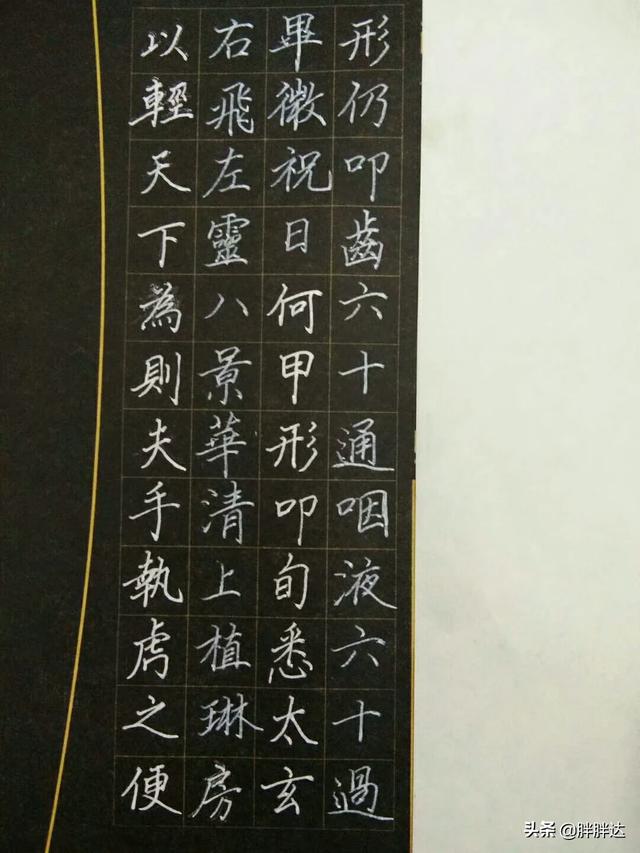 形仍叩齒六十通咽液六十過
畢微祝日何甲形叩旬悉太玄
右飛左靈八景華清上植琳房
以輕天下為則夫手執虐之便
头条 @胖胖达